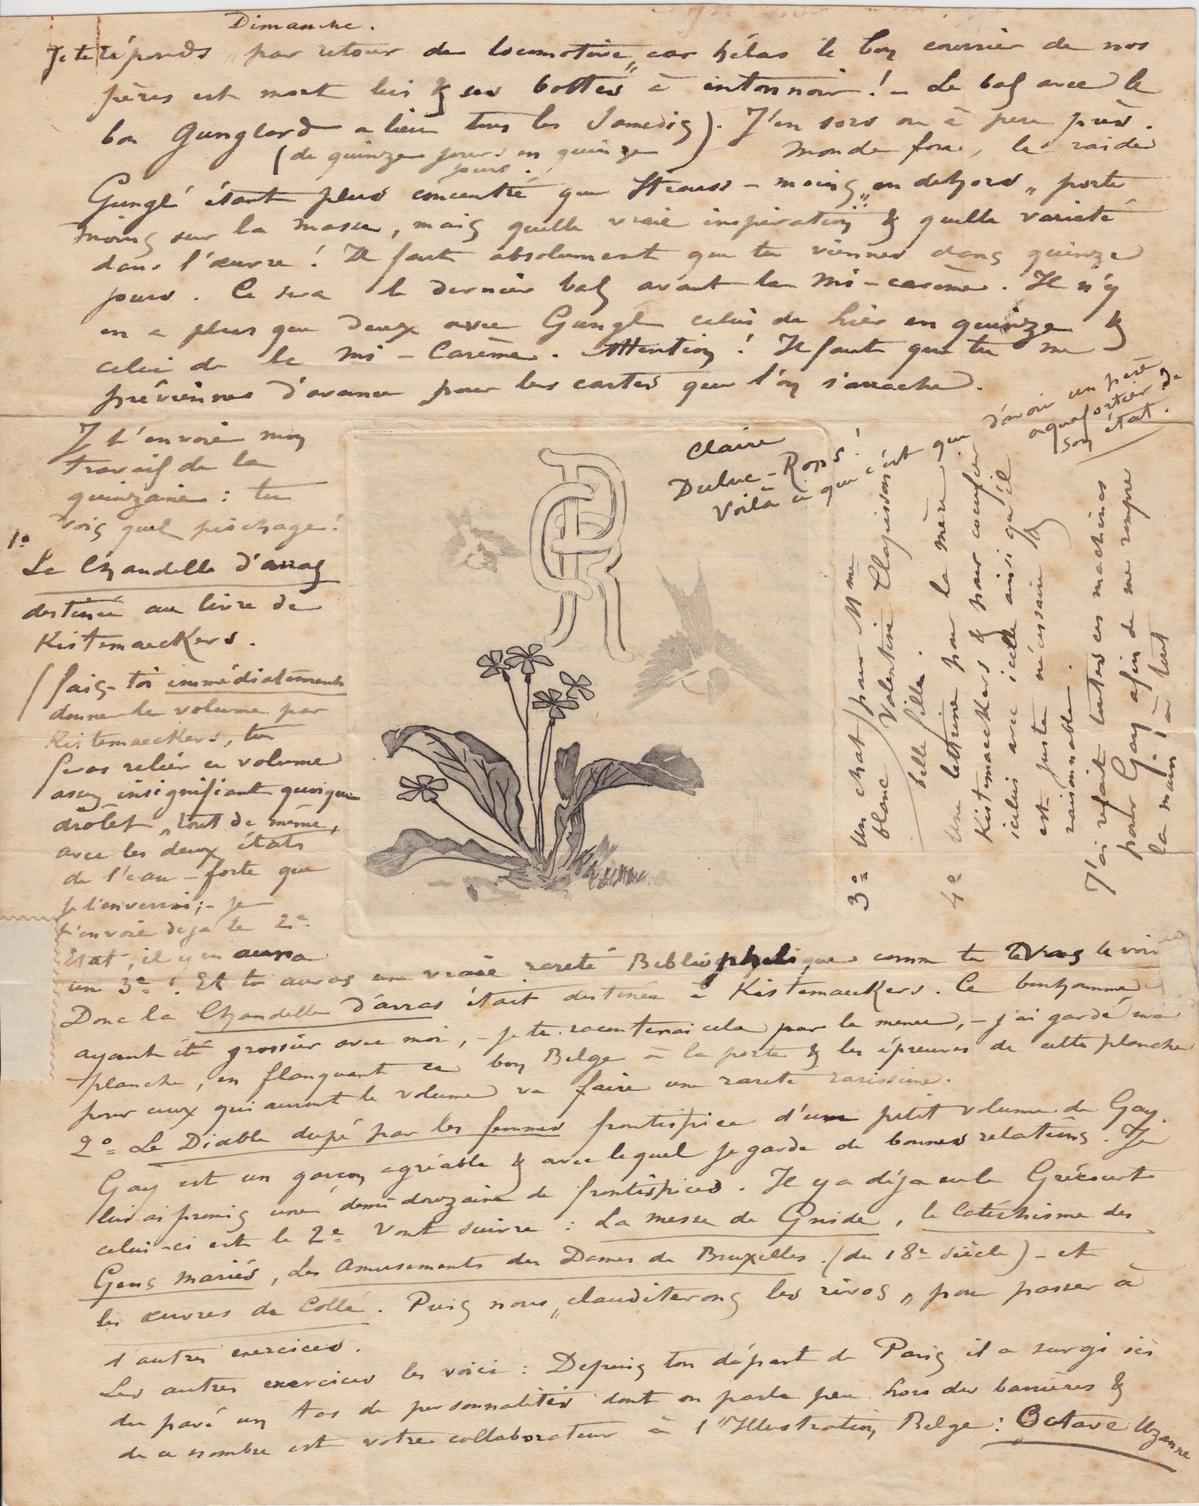 Dimanche.
Je te réponds „par retour de locomotive„ car hélas le bon courrier de nos
pères est mort lui & ses bottes à entonnoir ! – Le bal avec le
bon Gunglard a lieu tous les Samedis). J'en sors ou à peu près.
(de quinze jours en quinze
jours.
Monde fou, le raide
Gunglé étant plus concentré que Strauss – moins „en dehors„ porte
moins sur la masse, mais quelle vraie inspiration & quelle varieté
dans l'œuvre ! Il faut absolument que tu viennes dans quinze
jours. Ce sera le dernier bal avant la Mi-carême. Il n'y
en a plus que deux avec Gunglé celui de hier en quinze &
celui de la Mi-Carême. Attention ! Il faut que tu me
préviennes d'avance pour les cartes que l'on s'arrache.
Je t'envoie mon
travail de la
quinzaine : tu
vois quel piochage !
1º
La Chandelle d'arras
destinée au livre de
Kistemaeckers.
(fais-toi immédiatement
donner le volume par
Kistemaeckers, tu
feras relier ce volume
assez insignifiant quoique
drôlet „tout de même,
avec les deux états
de l'eau-forte que
je t'enverrai ;- je
t'envoie deja le 2e
Etat, il y en aura
un 3e ! Et tu auras une vraie rareté Bibliophilique comme tu vas le voir
Donc la Chandelle d'arras était destinée à Kistemaeckers. Ce bonhomme
ayant été grossier avec moi, - je te raconterai cela par le menu, - j'ai gardé ma
planche, en flanquant ce bon Belge à la porte & les épreuves de cette planche
pour ceux qui auront le volume va faire une rareté rarissime.
2º Le Diable dupé par les femmes frontispice d'un petit volume de Gay.
Gay est un garçon agréable & avec lequel je garde de bonnes relations. Je
lui ai promis une demi douzaine de frontispices. Il y a déja eu le Grécourt
celui-ci est le 2e Vont suivre : La messe de Gnide, le Catéchisme des
Gens Mariés, Les Amusements des Dames de Bruxelles (du 18e siècle) - et
les œuvres de Collé. Puis nous „clauditerons les rivos„ pour passer à
d'autres exercices.
Les autres exercices les voici : Depuis ton départ de Paris il a surgi ici
du pavé un tas de personnalités dont on parle peu hors des barrières &
de ce nombre est votre collaborateur à l'Illustration Belge : Octave Uzanne
Claire
Duluc-Rops !
Voilà ce que c'est que d'avoir un père
aquafortiste de
son état.
3º un chat pour Mme
blonc Valentine Clapisson
belle fille.
4º une lettrine pour la mère
Kistemaeckers & pour
icelui avec icelle ainsi qu'il
est juste nécessaire &
raisonnable.
J'ai refait toutes ces machines
pour Gay afin de me rompre
la main à tout